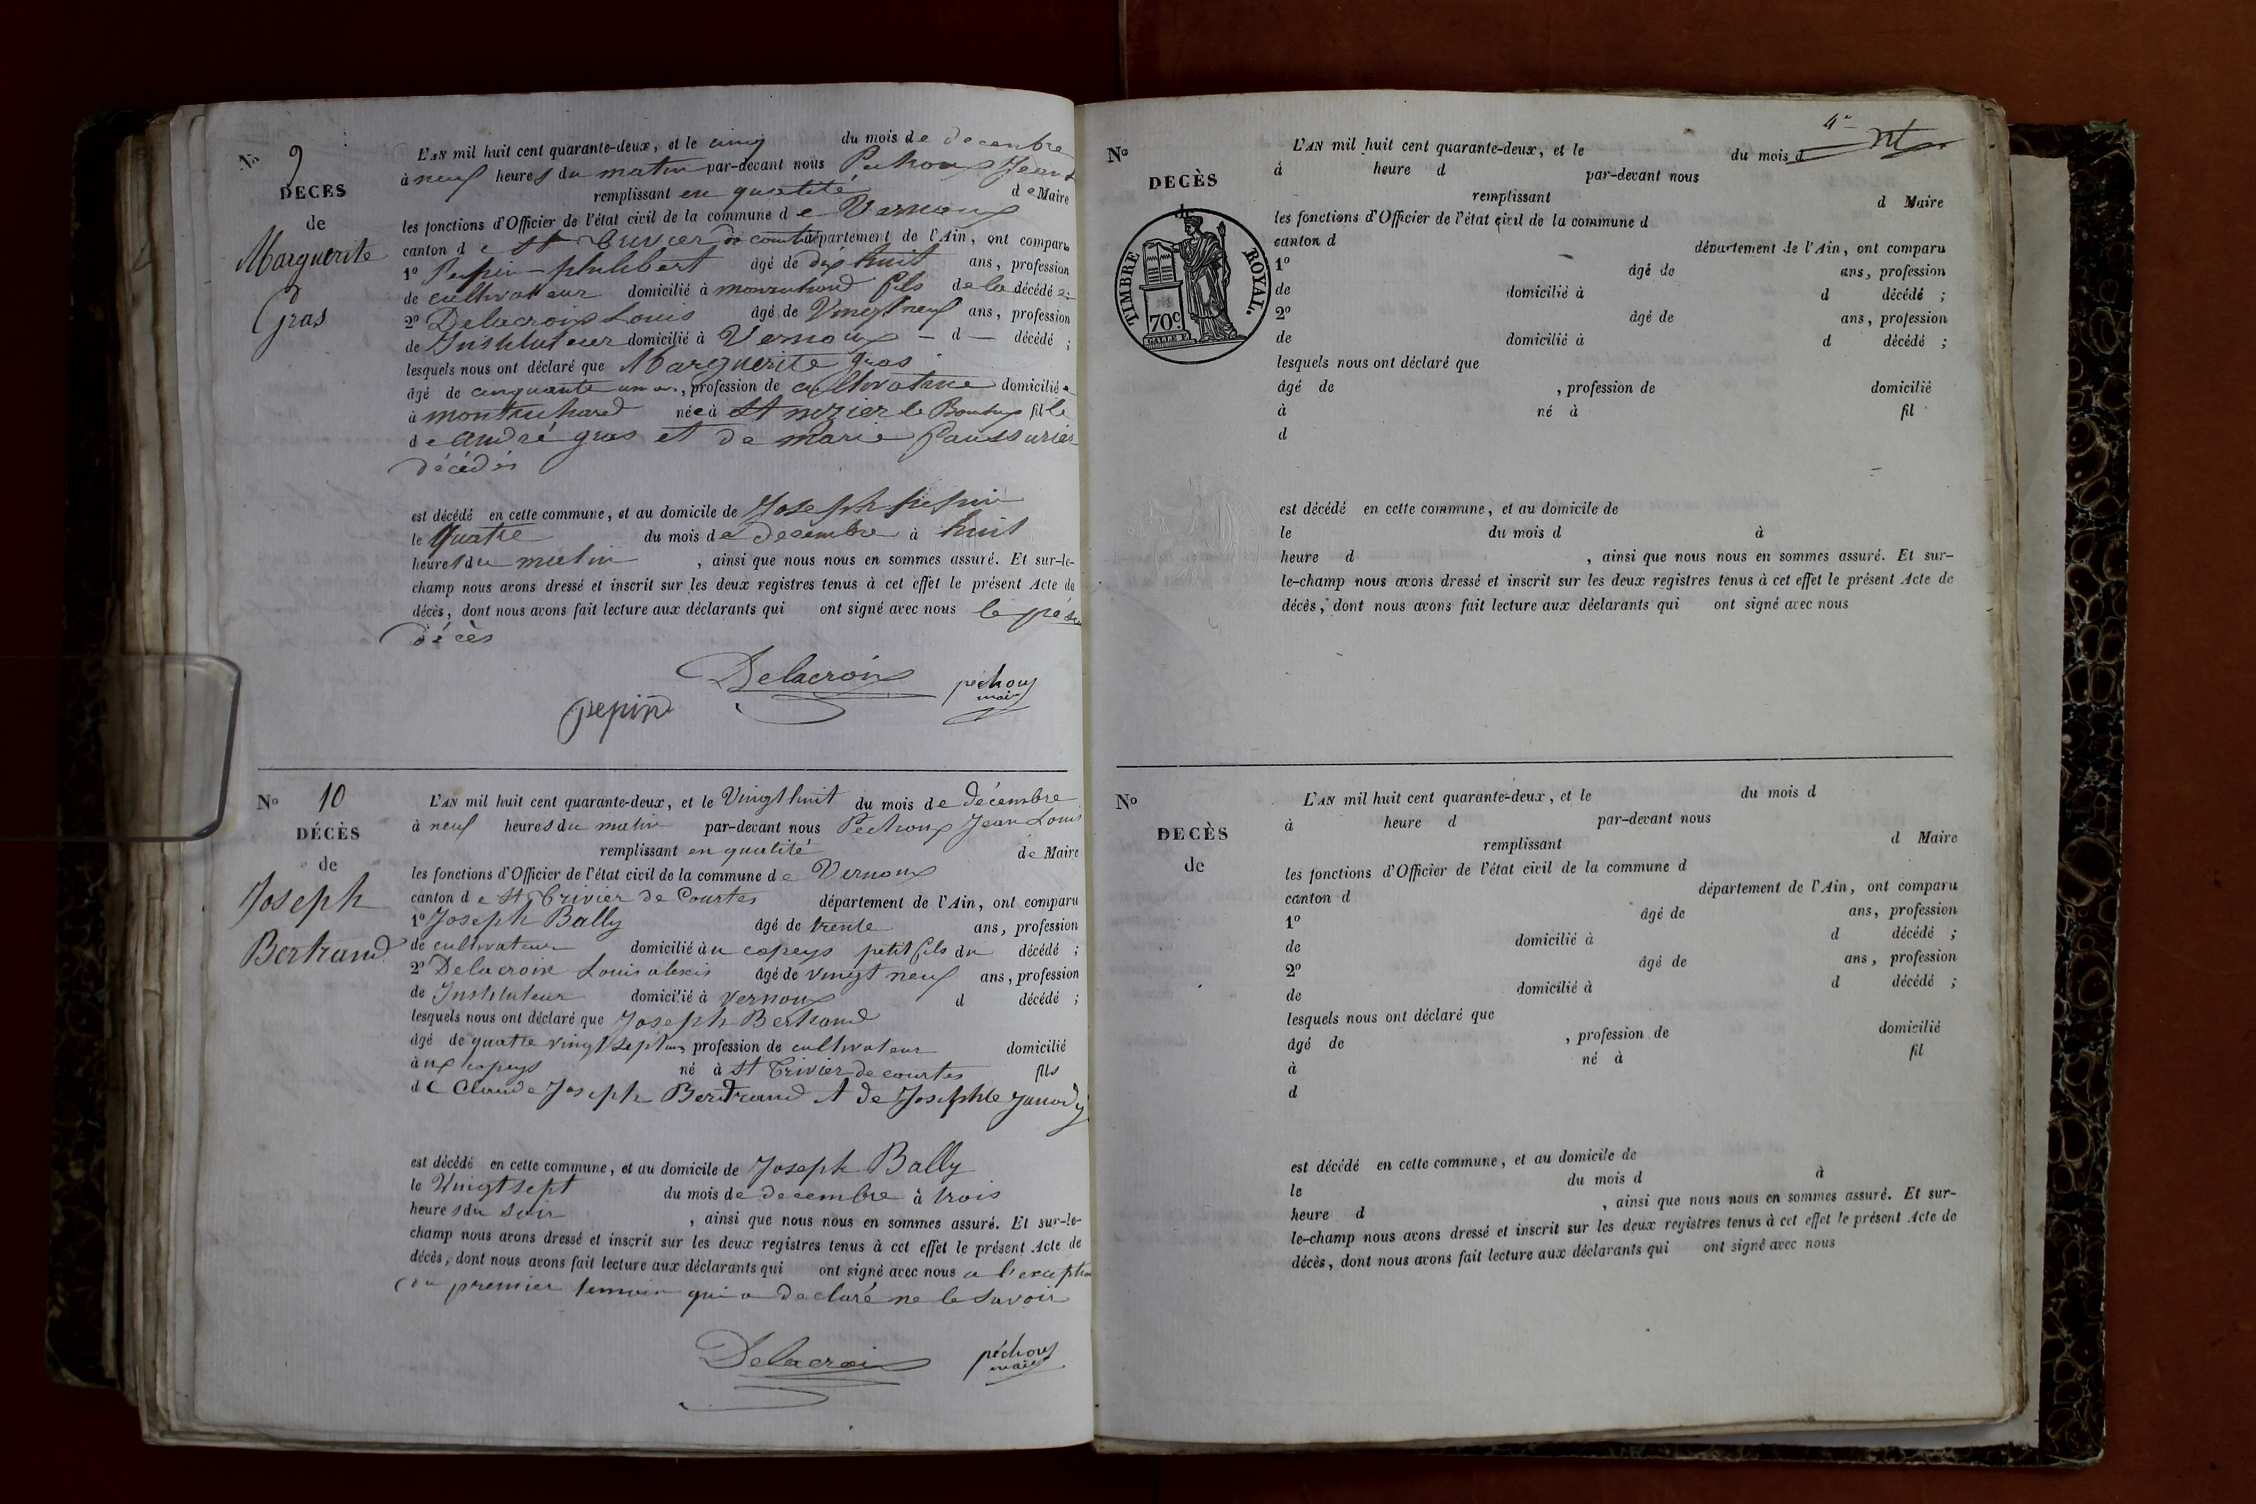 No 9
DECES
de
Marguerite
Gras
L'AN mil huit cent quarante-deux, et le cinq du mois de decembre
à neuf heures du matin par-devant nous Pechoux Jean
remplissant en qualité de Maire
les fonctions d'Officier de l'état civil de la commune de Vernoux
canton de St Trivier de Courtes département de l'Ain, ont comparu
1º Pepin philibert âgé de dix huit ans, profession
de cultivateur domicilié à montruchard fils de la décédée
2º Delacroix Louis âgé de Vingt neuf ans, profession
de Instituteur domicilié à Vernoux – d – décédé ;
lesquels nous ont déclaré que Marguerite gras
âgé de cinquante un ans, profession de cultivatrice domiciliée
à montruchard née à St nizier le Bouchoux fille
de andré gras et de marie
décédés
est décédé en cette commune, et au domicile de Joseph pepin
le quatre du mois de decembre à huit
heures du matin , ainsi que nous nous en sommes assuré. Et sur-le-
champ nous avons dressé et inscrit sur les deux registres tenus à cet effet le présent Acte de
décès, dont nous avons fait lecture aux déclarants qui ont signé avec nous le
décès
Delacroix
pechoux
maire
pepin
No 10
DÉCÈS
de
Joseph
Bertrand
L'AN mil huit cent quarante-deux, et le Vingt huit du mois de décembre
à neuf heures du matin par-devant nous Pechoux Jean Louis
remplissant en qualité de Maire
les fonctions d'Officier de l'état civil de la commune de Vernoux
canton de St Trivier de Courtes département de l'Ain, ont comparu
1º Joseph Bally âgé de trente ans, profession
de cultivateur domicilié au copeys petit fils du décédé ;
2º Delacroix Louis alexis âgé de vingt neuf ans, profession
de Instituteur domicilié à vernoux d décédé ;
lesquels nous ont déclaré que Joseph Bertrand
âgé de quatre vingt sept ans, profession de cultivateur domicilié
aux copeys né à St Trivier de courtes fils
de Claude Joseph Bertrand et de Josephte
est décédé en cette commune, et au domicile de Joseph Bally
le Vingt sept du mois de decembre à trois
heures du soir , ainsi que nous nous en sommes assuré. Et sur-le-
champ nous avons dressé et inscrit sur les deux registres tenus à cet effet le présent Acte de
décès, dont nous avons fait lecture aux déclarants qui ont signé avec nous a l'exception
du premier temoin qui a declaré ne le savoir
Delacroix
péchoux
maire
4e
No
DECÈS
de
TIMBRE ROYAL.
70c.
L'AN mil huit cent quarante-deux, et le du mois d
à heure d par-devant nous
remplissant d Maire
les fonctions d'Officier de l'état civil de la commune d
canton d département de l'Ain, ont comparu
1º âgé de ans, profession
de domicilié à d décédé ;
2º âgé de ans, profession
de domicilié à d décédé ;
lesquels nous ont déclaré que
âgé de , profession de domicilié
à né à fil
d
est décédé en cette commune, et au domicile de
le du mois d à
heure d , ainsi que nous nous en sommes assuré. Et sur-
le-champ nous avons dressé et inscrit sur les deux registres tenus à cet effet le présent Acte de
décès, dont nous avons fait lecture aux déclarants qui ont signé avec nous
No
DECÈS
de
L'AN mil huit cent quarante-deux, et le du mois d
à heure d par-devant nous
remplissant d Maire
les fonctions d'Officier de l'état civil de la commune d
canton d département de l'Ain, ont comparu
1º âgé de ans, profession
de domicilié à d décédé ;
2º âgé de ans, profession
de domicilié à d décédé ;
lesquels nous ont déclaré que
âgé de , profession de domicilié
à né à fil
d
est décédé en cette commune, et au domicile de
le du mois d à
heure d , ainsi que nous nous en sommes assuré. Et sur-
le-champ nous avons dressé et inscrit sur les deux registres tenus à cet effet le présent Acte de
décès, dont nous avons fait lecture aux déclarants qui ont signé avec nous